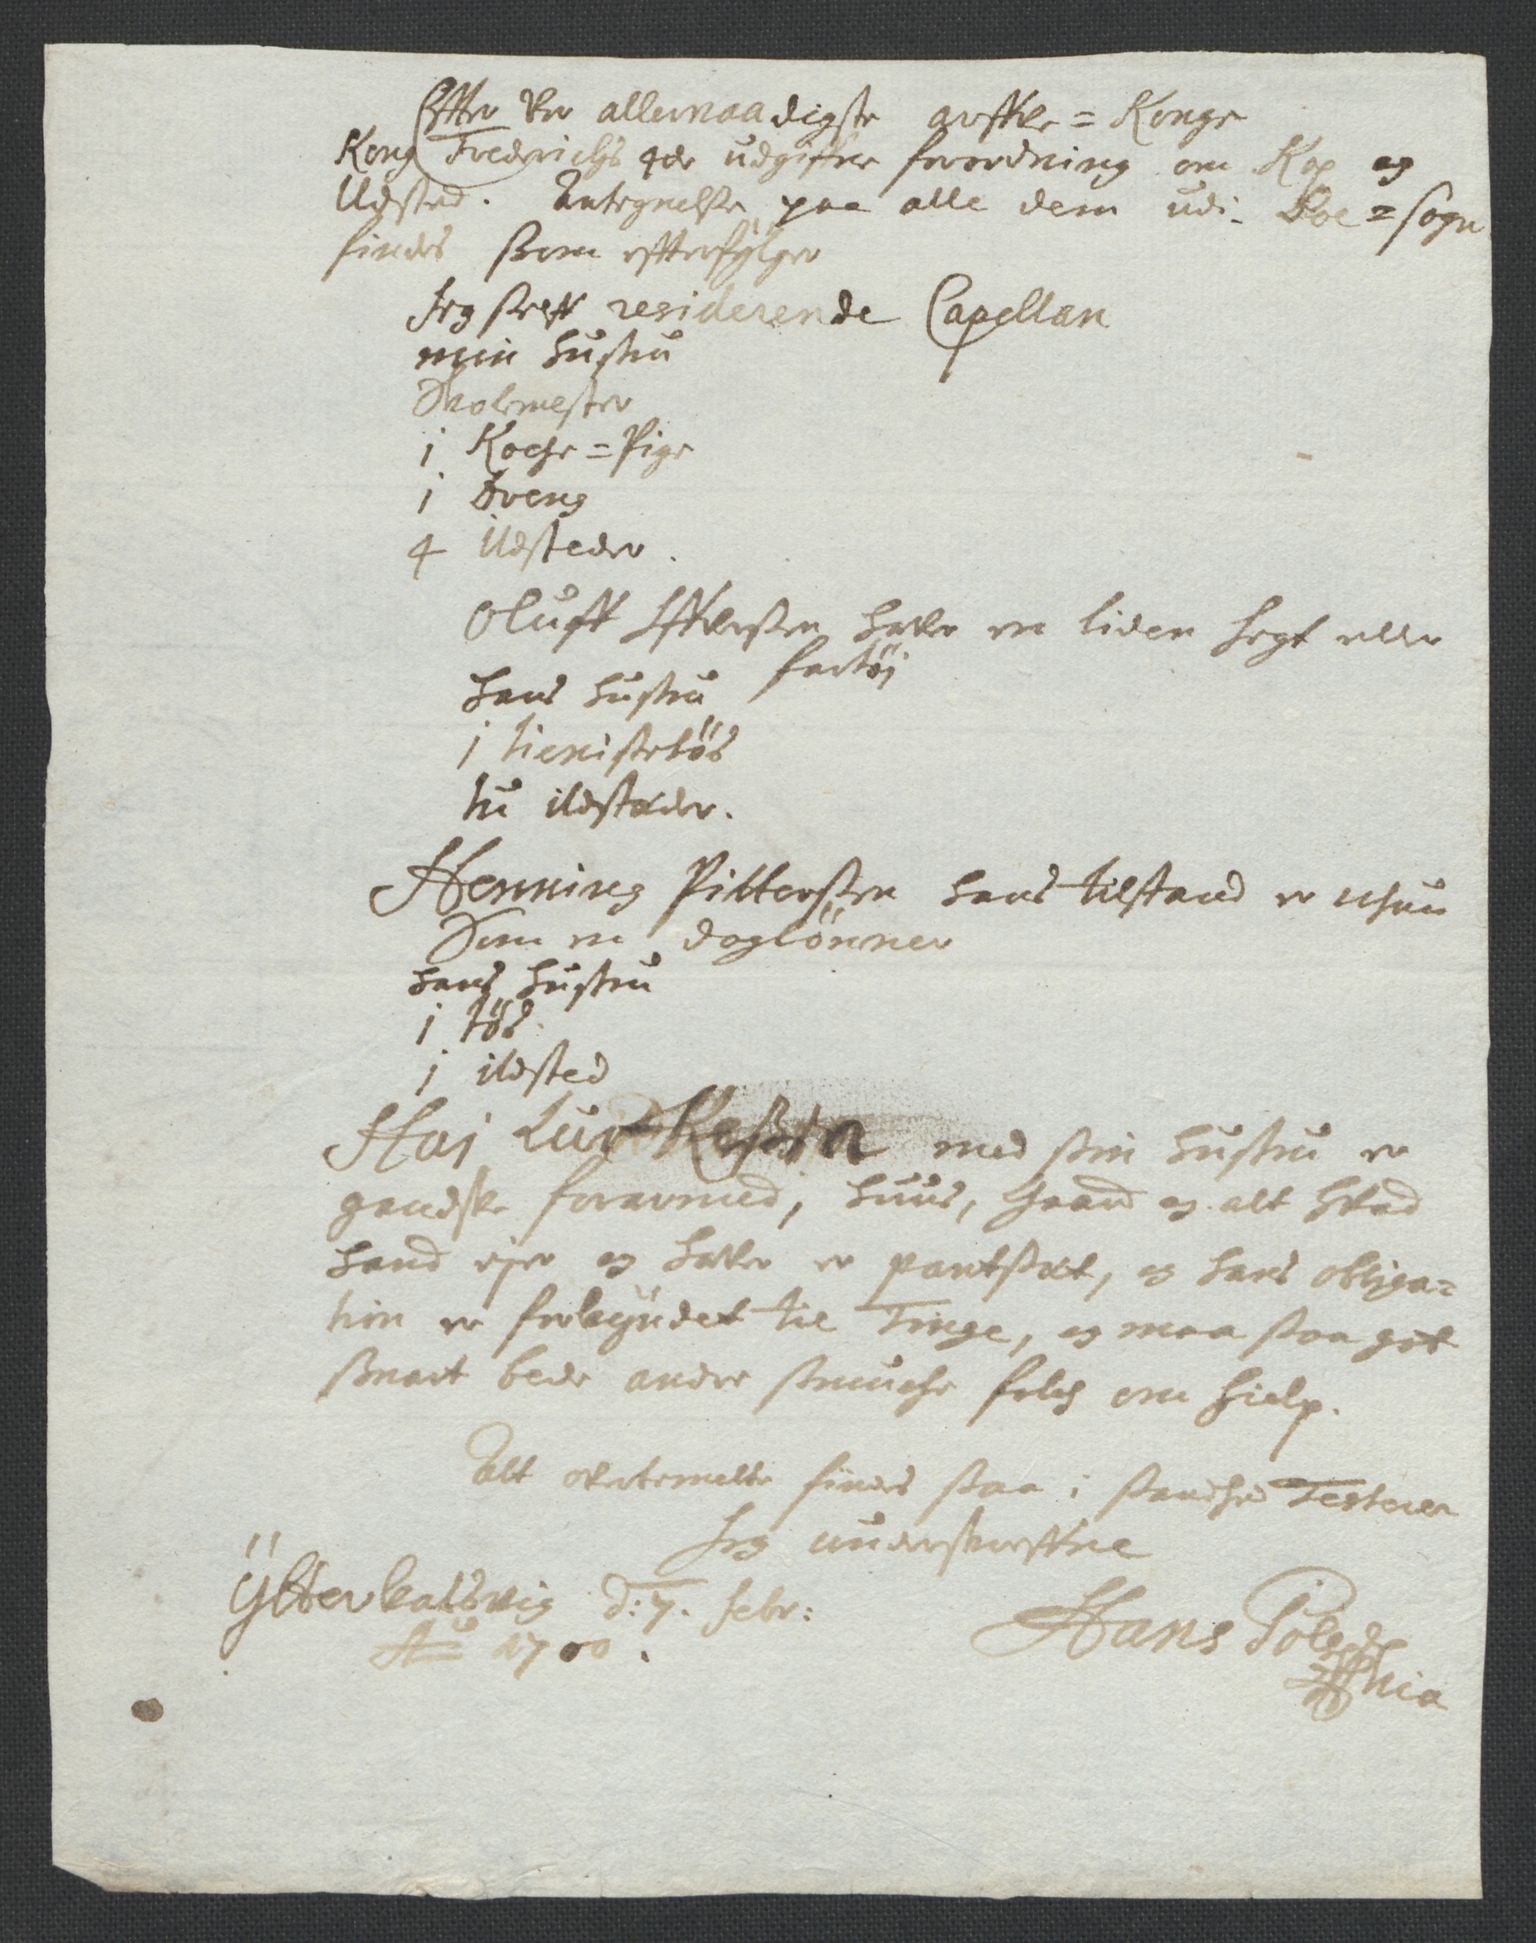 Efter vor allernaadigste arffve = Konge
Kong Friderichs 4de udgifne forordning om Kop og
Ildsted. Antegnelse paa alle dem udi Boe = sogn
findes som efterfølger
Jeg self residerende Capellan
min hustru
Skolemester
1 Koche = Pige
1 dreng
4 Ildsteder.
Oluff hafver en liden Jegt eller
fartöj
hans hustru
1 tienistetös
tu ildstæder.
Henning Pittersen hans tilstand er
Som en daglönner
hans hustru
1 tös
1 ildsted
Haj med sin hustru er
gandske forarmed, huus, gaard og alt hvad
hand ejer og hafver er pantsat, og hans obliga=
tion er forkyndet til Tinge, og maa saa got
snart bede andre smuche folch om hielp.
Alt ofvermelte findes saa i sandhed Testerer
Jeg underskrefne
d: 7. febr:
Ao 1700.
Hans